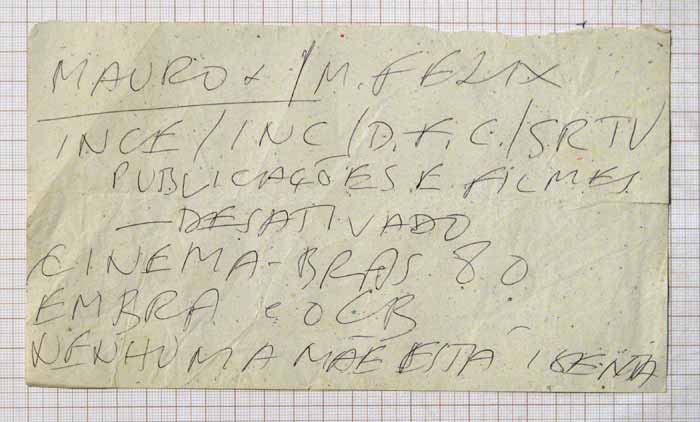 MAURO + / M. FELIX
INCE / INC / D.F.C. / SRTV
PUBLICAÇÕES E FILMES
— DESATIVADO
CINEMA - BRAS 80
EMBRA e O CB
NENHUMA MÃE ESTÁ ISENTA